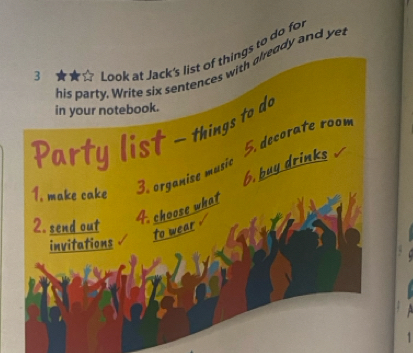 3 ★★☆ Look at Jack's list of things to do for
his party. Write six sentences with already and yet
in your notebook.
Party list – things to do
1. make cake
2. send out
invitations ✓
3. organise music
4. choose what
to wear ✓
5. decorate room
6. buy drinks ✓